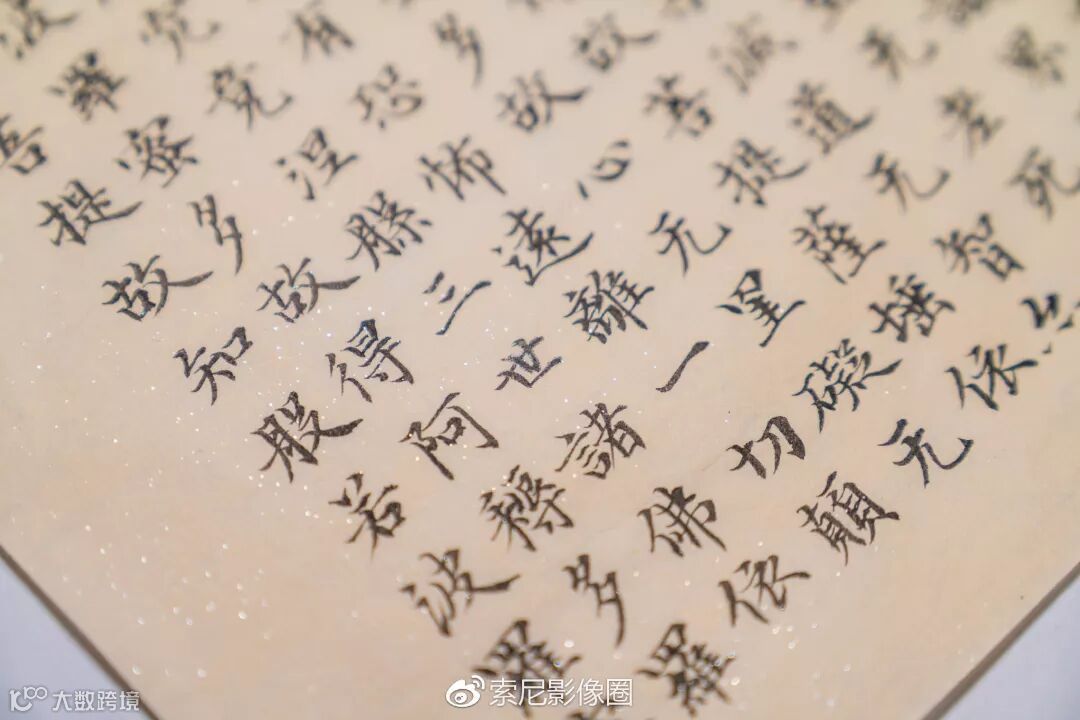 无老死
滅道无智
故菩提薩埵依
多故心无罣礙无
有恐怖遠離一切顛
究竟涅槃三世諸佛依
波羅蜜多故得阿耨多羅
菩提故知般若波羅
大数跨境
索尼影像圈